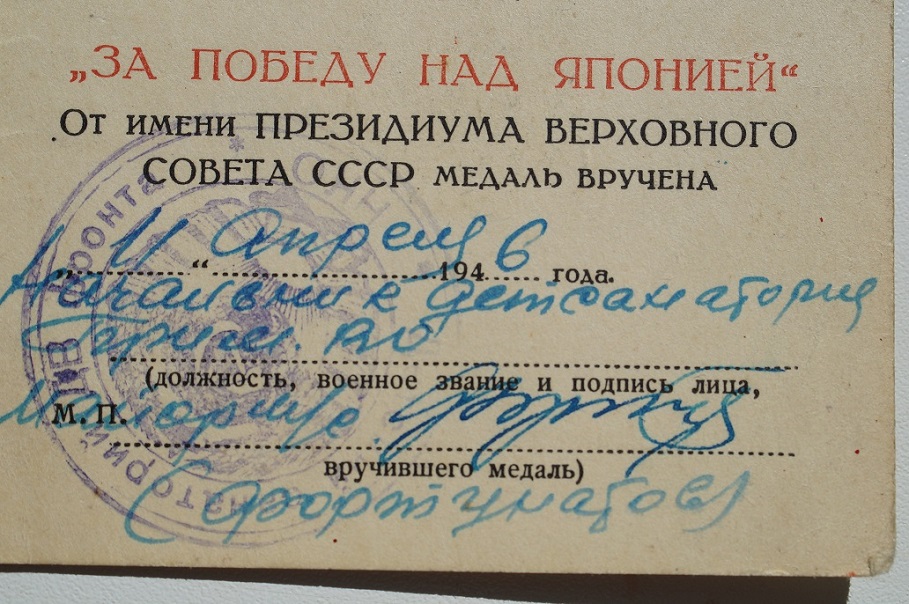 „ЗА ПОБЕДУ НАД ЯПОНИЕЙ“
От имени ПРЕЗИДИУМА ВЕРХОВНОГО
СОВЕТА СССР МЕДАЛЬ ВРУЧЕНА
„11“ Апреля 1946 года.
Начальник детсанатория
Прим. ВО
(должность, военное звание и подпись лица,
М. П. Майор м/с.
вручившего медаль)
(Фортунатов)
фронта *
ДИВ